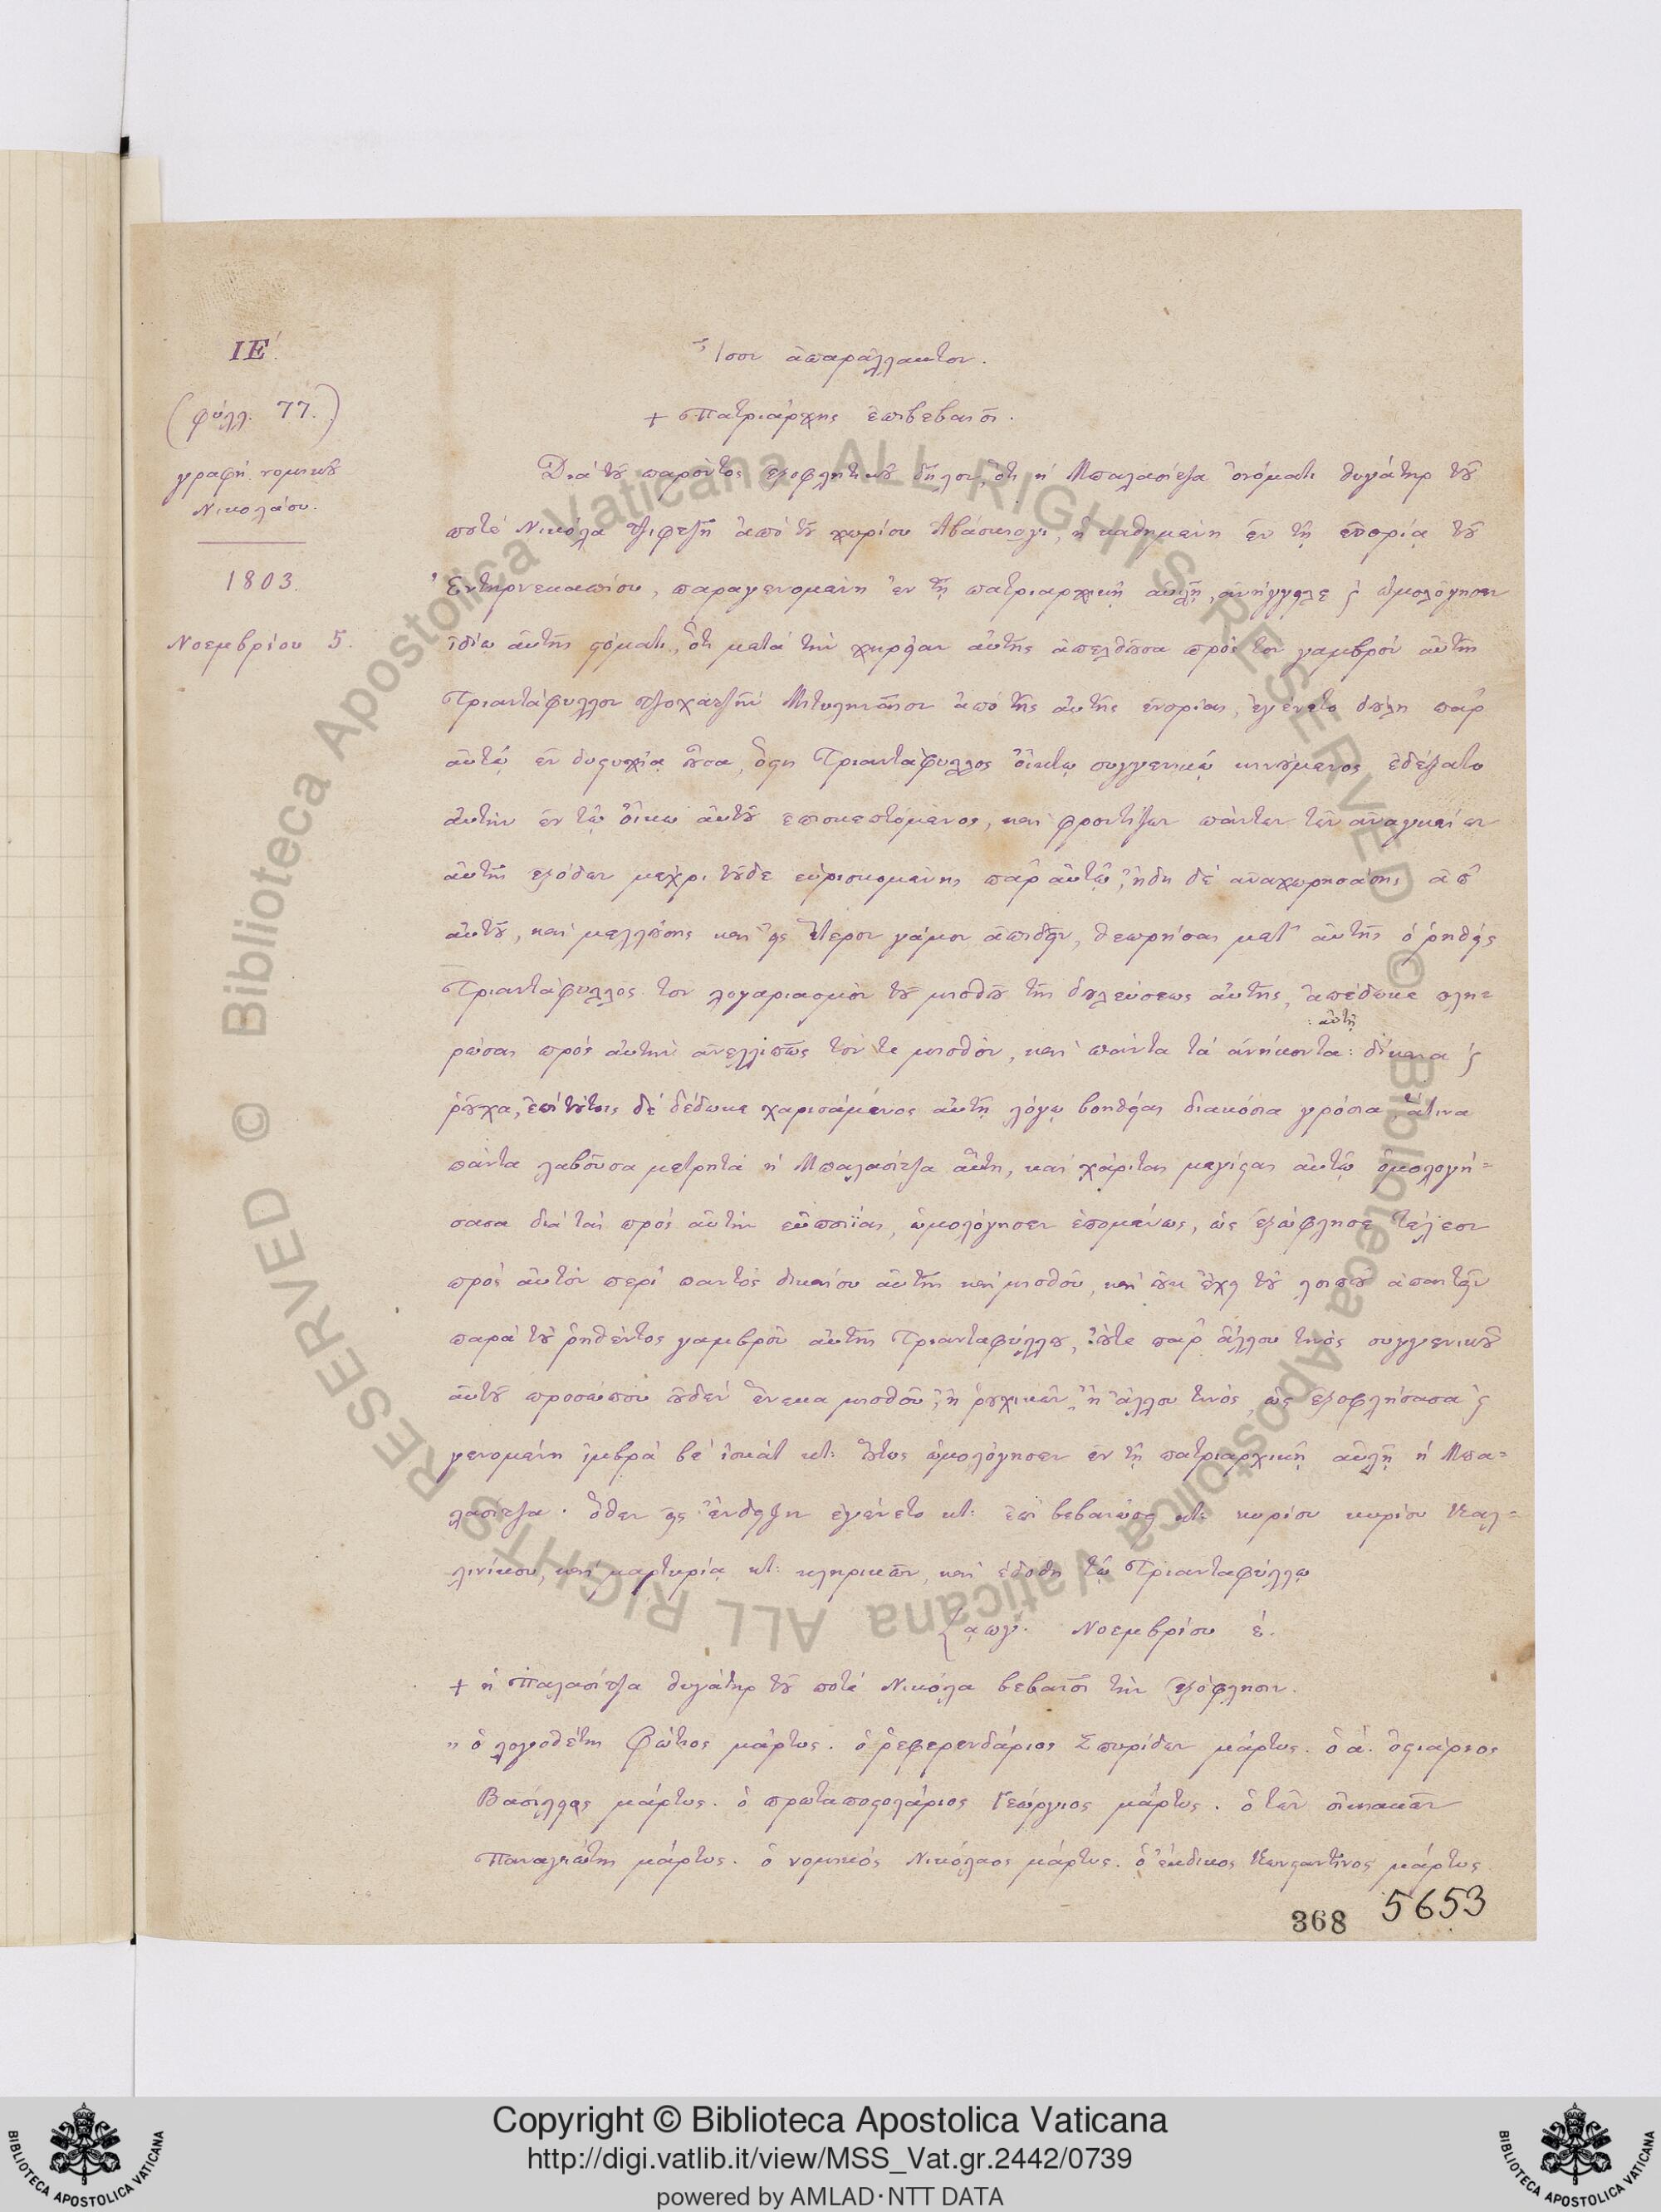 ΙΕ΄.
(φύλλ. 77.)
γραφὴ νομικοῦ
Νικολάου.
1803.
Νοεμβρίου 5.
Ἴσον ἀπαράλλακτον.
+ Πατριάρχης ἐπιβεβαιοῖ.
Διὰ τοῦ παρόντος ἐξοφλητικοῦ δῆλον, ὅτι ἡ Μπαλασίτζα ὀνόματι θυγάτηρ τοῦ
ποτὲ Νικόλα ἀπὸ τοῦ χωρίου, ἡ καθημένη ἐν τῇ ἐνορίᾳ τοῦ
Ἐντηρνεκαπίου, παραγενομένη ἐν τῇ πατριαρχικῇ αὐλῇ, ἀνήγγειλε ϗ ὡμολόγησεν
ἰδίῳ αὐτῆς στόματι, ὅτι μετὰ τὴν χηρείαν αὐτῆς ἀπελθοῦσα πρὸς τὸν γαμβρὸν αὐτῆς
Τριαντάφυλλον Μιτυληναῖον ἀπὸ τῆς αὐτῆς ἐνορίας, ἐγένετο δούλη παρ᾽
αὐτῷ ἐν δυστυχίᾳ οὖσα, ὅστις Τριαντάφυλλος οἴκτῳ συγγενικῷ κινούμενος ἐδέξατο
αὐτὴν ἐν τῷ οἴκῳ αὐτοῦ ἐπισκεπτόμενος, καὶ φροντίζων πάντων τῶν ἀναγκαίων
αὐτῆς ἐξόδων μέχρι τοῦδε εὑρισκομένης παρ᾽ αὐτῷ, ἤδη δὲ ἀναχωρησάσης ἀπ᾽
αὐτοῦ, καὶ μελλούσης καὶ εἰς ἕτερον γάμον ἀπιδεῖν, θεωρήσας μετ᾽ αὐτῆς ὁ ῥηθεὶς
Τριαντάφυλλος τὸν λογαριασμὸν τοῦ μισθοῦ τῆς δουλεύσεως αὐτῆς, ἀπέδωκε πλη=
: αὐτῇ
ρώσας πρὸς αὐτὴν ἀνελλιπῶς τόν τε μισθὸν, καὶ πάντα τὰ ἀνήκοντα: δίκαια ϗ
ῥοῦχα, ἐπὶ τούτοις δὲ δέδωκε χαρισάμενος αὐτῇ λόγῳ βοηθείας διακόσια γρόσια, ἅτινα
πάντα λαβοῦσα μετρητὰ ἡ Μπαλασίτζα αὕτη, καὶ χάριτας μεγίστας αὐτῷ ὁμολογή=
σασα διὰ τὰς πρὸς αὐτὴν εὐποιΐας, ὡμολόγησεν ἑπομένως, ὡς ἐξώφλησε τέλεον
πρὸς αὐτὸν περὶ παντὸς δικαίου αὐτῆς καὶ μισθοῦ, καὶ οὐκ ἔχει τοῦ λοιποῦ ἀπαιτεῖν
παρὰ τοῦ ῥηθέντος γαμβροῦ αὐτῆς Τριανταφύλλου, οὔτε παρ᾽ ἄλλου τινὸς συγγενικοῦ
αὐτοῦ προσώπου οὐδὲν ἕνεκα μισθοῦ, ἢ ῥουχικῶν, ἢ ἄλλου τινὸς, ὡς ἐξοφλήσασα ϗ
γενομένη ἰμβρὰ βὲ ἰσκὰτ κτ: οὕτως ὡμολόγησεν ἐν τῇ πατριαρχικῇ αὐλῇ ἡ Μπα=
λασίτζα. ὅθεν εἰς ἔνδειξιν ἐγένετο κτ: ἐπὶ βεβαιώσει κτ: κυρίου κυρίου Καλ=
λινίκου, καὶ μαρτυρίᾳ κτ: κληρικῶν, καὶ ἐδόθη τῷ Τριανταφύλλῳ
͵αωγ΄. Νοεμβρίου ε΄.
+ ἡ Μπαλασίτζα θυγάτηρ τοῦ ποτὲ Νικόλα βεβαιοῖ τὴν ἐξόφλησιν.
„ ὁ λογοθέτης Φώτιος μάρτυς. ὁ ῥεφερενδάριος Σπυρίδων μάρτυς. ὁ α΄. ὀστιάριος
Βασίλειος μάρτυς. ὁ πρωταποστολάριος Γεώργιος μάρτυς. ὁ τῶν οἰκιακῶν
Παναγιώτης μάρτυς. ὁ νομικὸς Νικόλαος μάρτυς. ὁ ἔκδικος Κωνσταντῖνος μάρτυς.
368 5653
© Biblioteca Apostolica Vaticana ALL RIGHTS RESERVED
© Biblioteca Apostolica Vaticana ALL RIGHTS RESERVED
Copyright © Biblioteca Apostolica Vaticana
http://digi.vatlib.it/view/MSS_Vat.gr.2442/0739
powered by AMLAD·NTT DATA
BIBLIOTECA APOSTOLICA VATICANA
BIBLIOTECA APOSTOLICA VATICANA